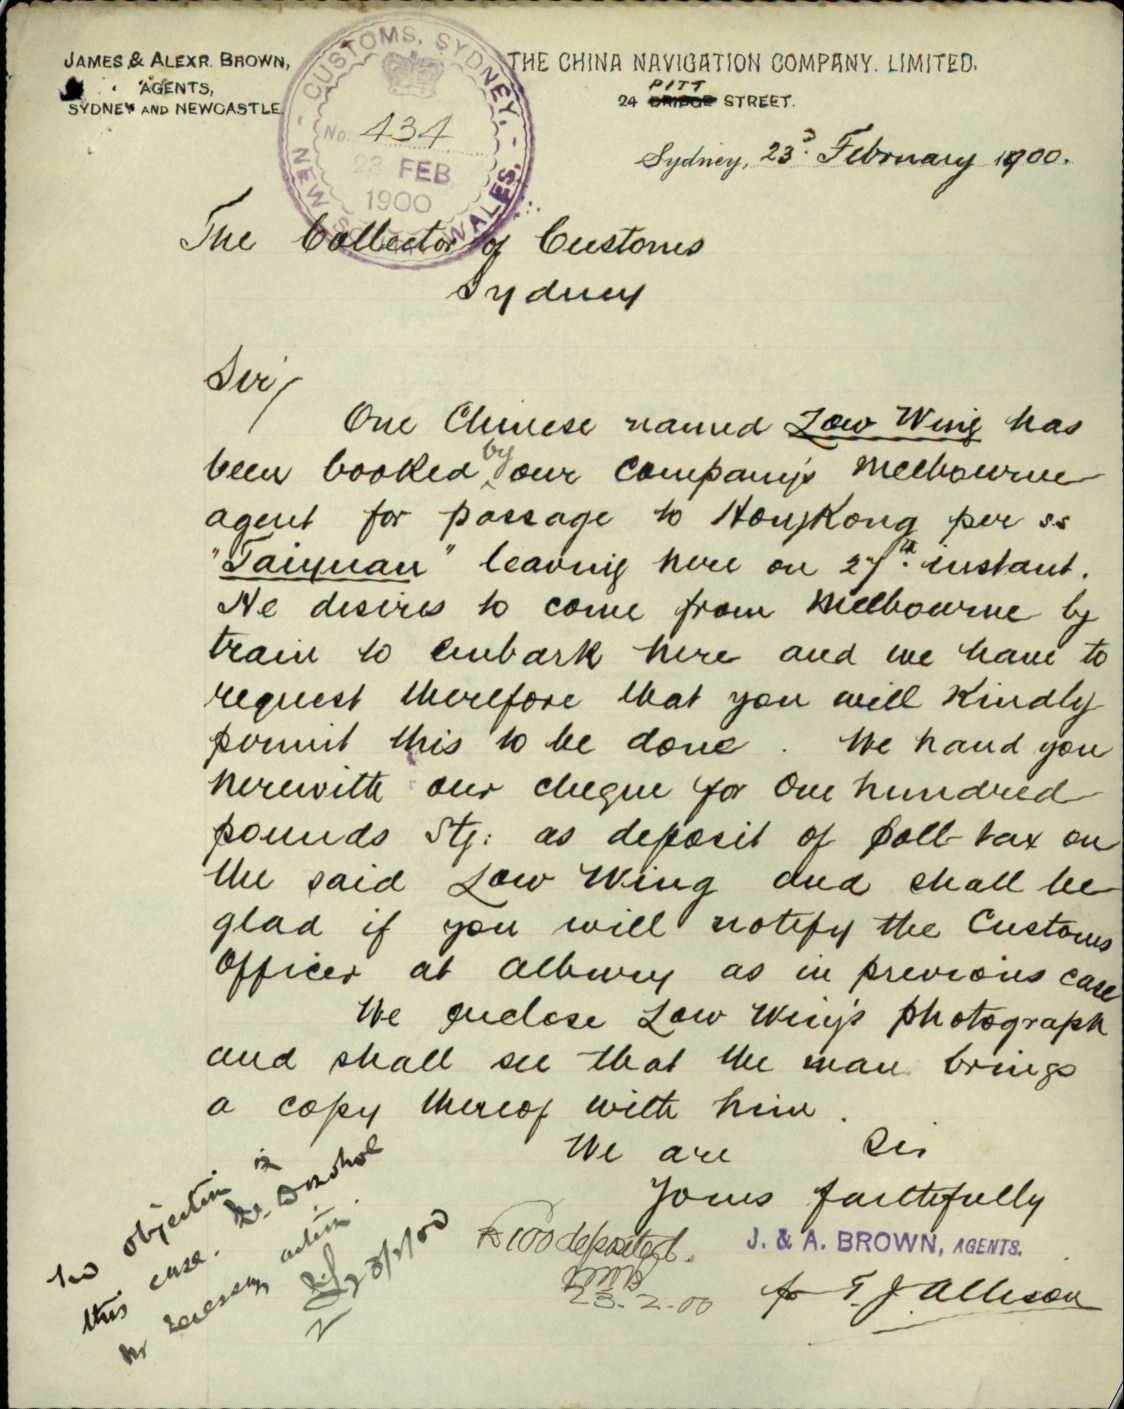 JAMES & ALEXR. BROWN,
AGENTS,
SYDNEY AND NEWCASTLE.
THE CHINA NAVIGATION COMPANY. LIMITED.
PITT
24 BRIDGE STREET.
CUSTOMS, SYDNEY,
NEW SOUTH WALES.
No. 434
23 FEB
1900
Sydney, 23d. February 1900.
The Collector of Customs
Sydney
Sir/
One Chinese named Low Wing has
been booked by our Company's Melbourne
agent for passage to HongKong per ss
"Taiyuan" leaving here on 27th. instant.
He desires to come from Melbourne by
train to embark here and we have to
request therefore that you will Kindly
permit this to be done. We hand you
herewith our cheque for One hundred
pounds Stg: as deposit of poll tax on
the said Low Wing and shall be
glad if you will notify the Customs
Officer at Albury as in previous case
We enclose Low Wing's photograph
and shall see that the man brings
a copy thereof with him.
We are Sir
Yours faithfully
J. & A. BROWN, AGENTS.
for T. J. Allison
£100 deposited.
23.2.00
No objection in
this case. Mr. Donohoe
for necessary action.
23/2/00